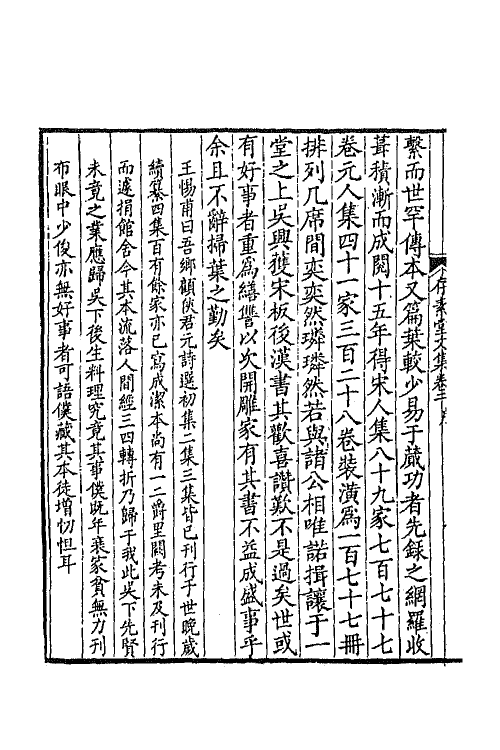 繫而世罕傳本又篇葉較少易于蕆功者先錄之網羅收
葺積漸而成閱十五年得宋人集八十九家七百七十七
卷元人集四十一家三百二十八卷裝潢爲一百七十七冊
排列几席間奕奕然璘璘然若與諸公相唯諾揖讓于一
堂之上吳興獲宋板後漢書其歡喜讚歎不是過矣世或
有好事者重爲繕讐以次開雕家有其書不益成盛事乎
余且不辭掃葉之勤矣
王惕甫曰吾鄉顧俠君元詩選初集二集三集皆已刊行于世晚歲
續纂四集百有餘家亦已寫成潔本尚有一二爵里闕考未及刊行
而遽捐館舍今其本流落人間經三四轉折乃歸于我此吳下先賢
未竟之業應歸吳下後生料理究竟其事僕旣年衰家貧無力刊
布眼中少俊亦無好事者可語僕藏其本徒增忉怛耳
存素堂文集卷二